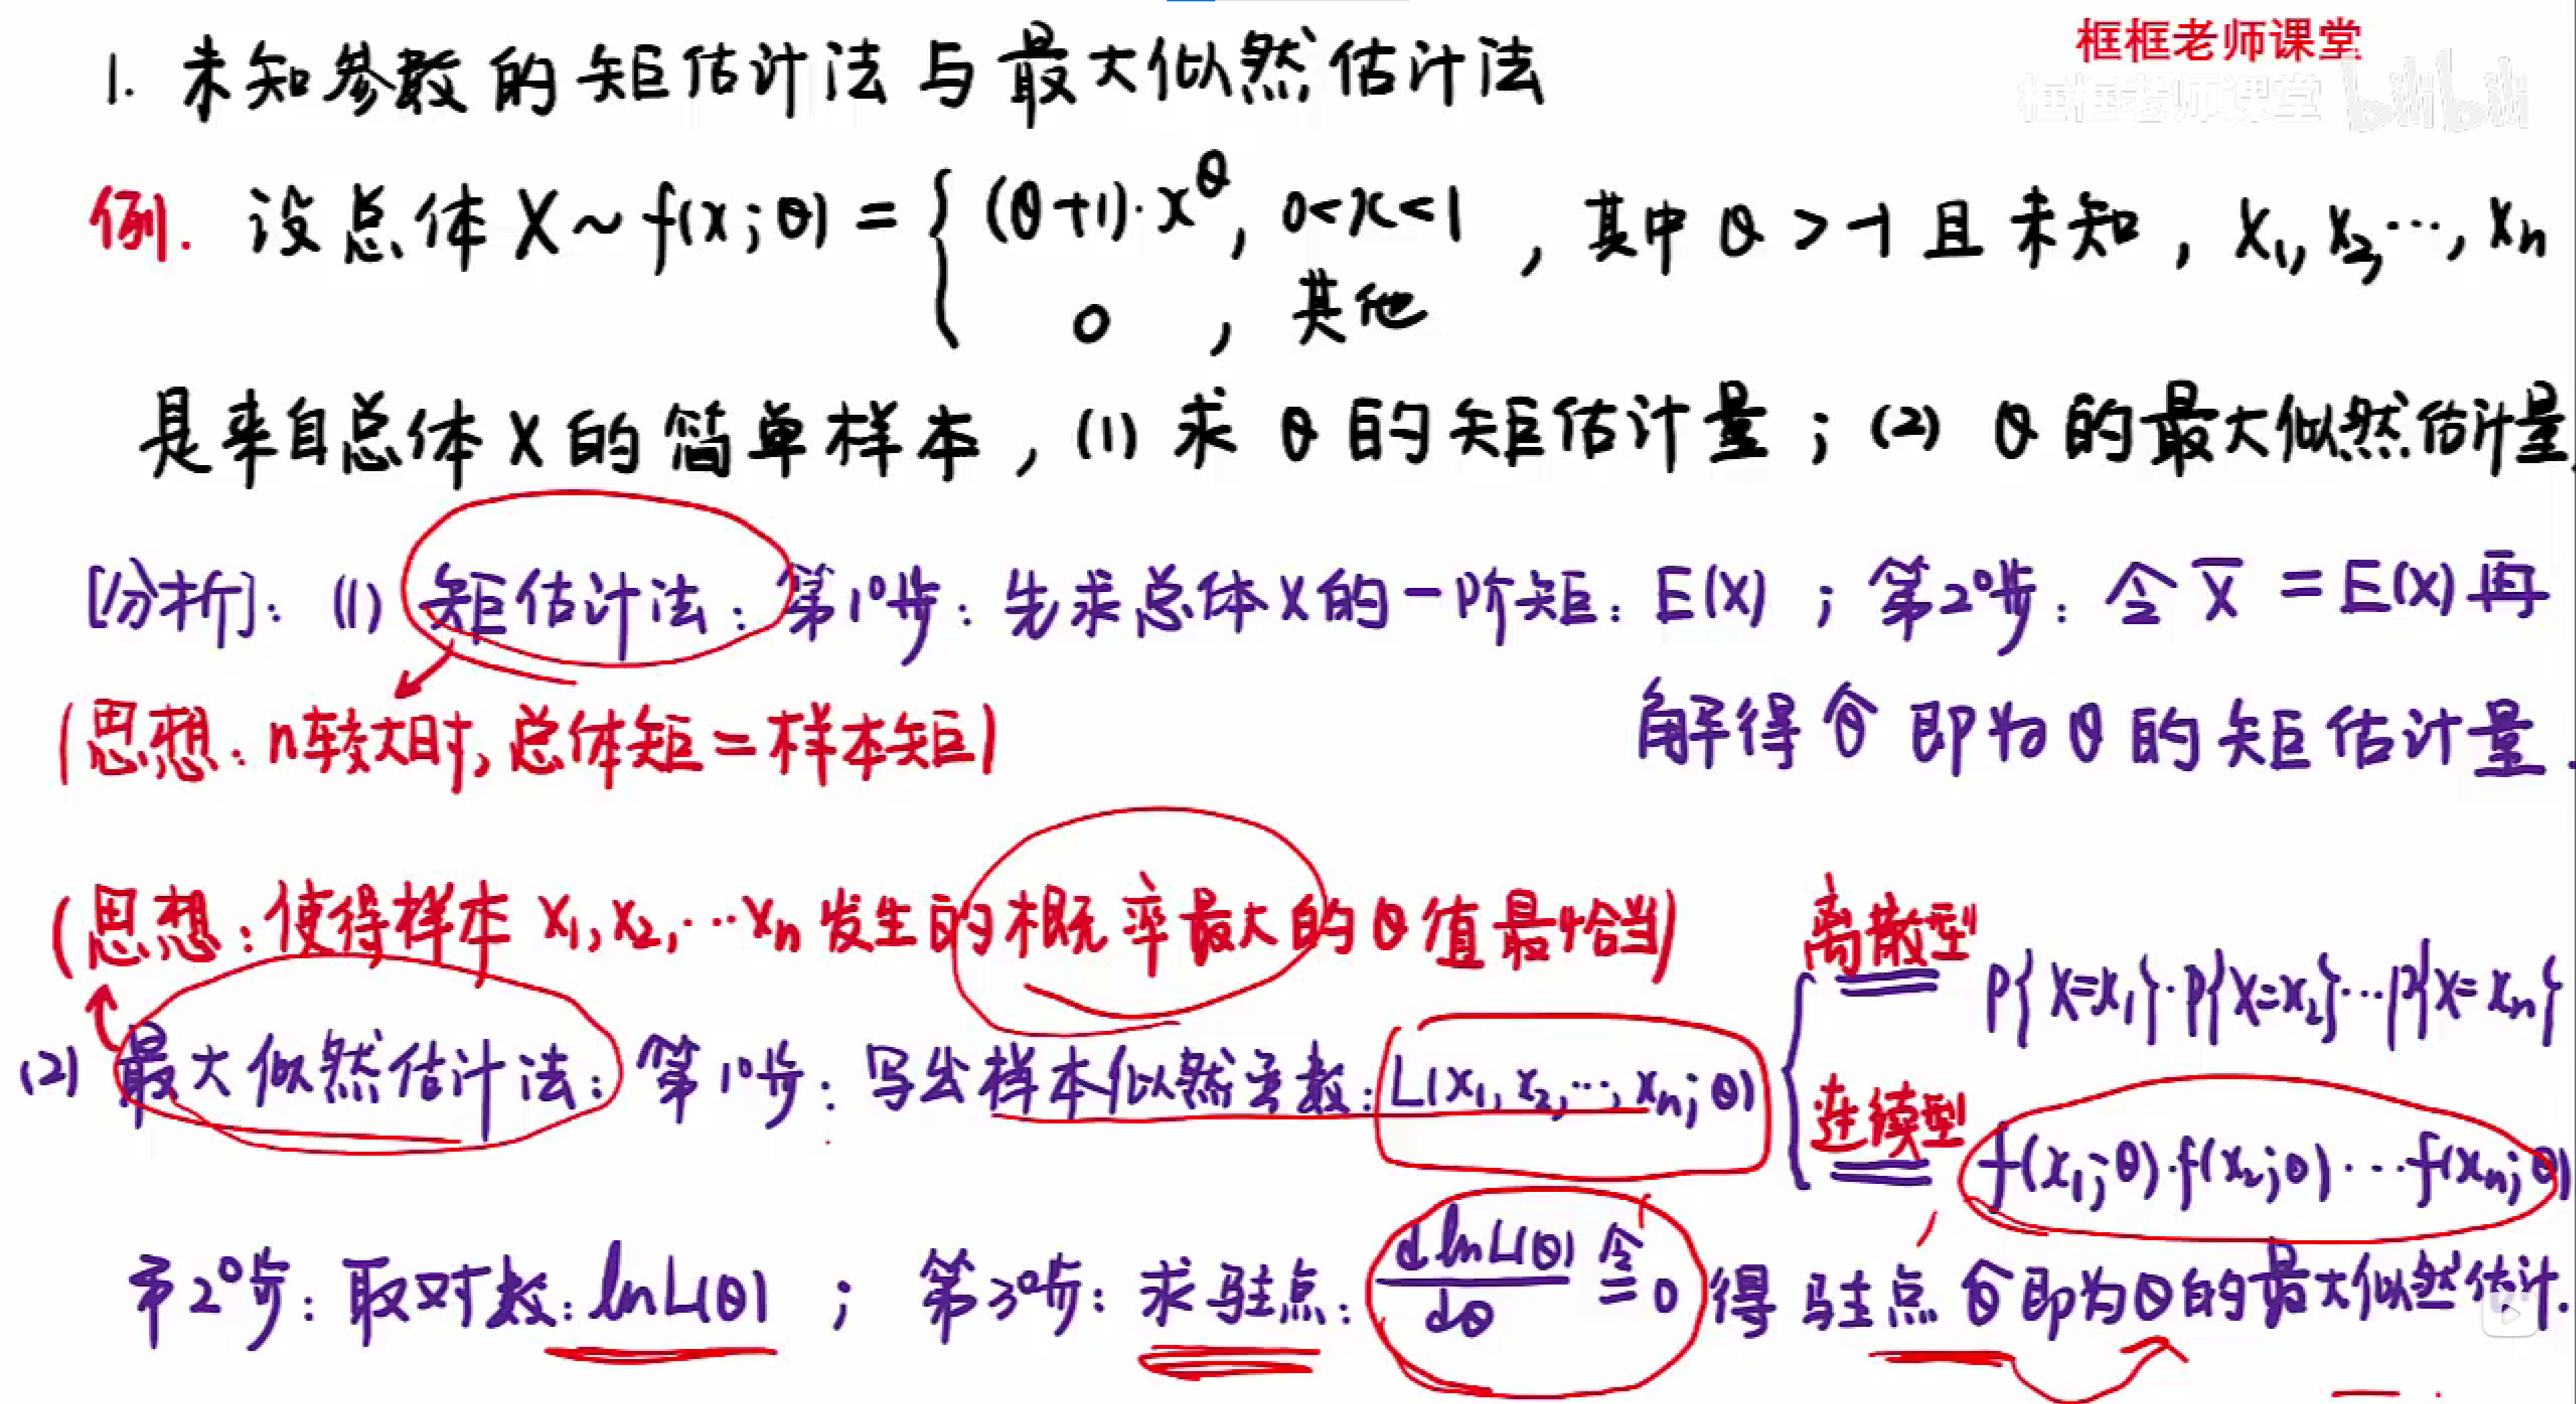 框框老师课堂
框框老师课堂 bilibili
1. 未知参数的矩估计法与最大似然估计法
例. 设总体 X ~ f(x;θ) = { (θ+1)·x^θ, 0<x<1 , 其中 θ>-1 且未知, X₁,X₂,…,Xₙ
0 , 其他
是来自总体 X 的简单样本, (1) 求 θ 的矩估计量; (2) θ 的最大似然估计量
[分析]: (1) 矩估计法: 第1°步: 先求总体X的一阶矩: E(X) ; 第2°步: 令 X̄ = E(X) 再
解得 θ̂ 即为 θ 的矩估计量.
(思想: n较大时, 总体矩=样本矩)
(思想: 使得样本 X₁,X₂,…Xₙ 发生的概率最大的θ值最恰当)
离散型 P{X=x₁}·P{X=x₂}…P{X=xₙ}
(2) 最大似然估计法: 第1°步: 写出样本似然函数: L(x₁,x₂,…,xₙ;θ)
连续型 f(x₁;θ)·f(x₂;θ)…f(xₙ;θ)
第2°步: 取对数: lnL(θ) ; 第3°步: 求驻点: dlnL(θ)/dθ 令= 0 得 驻点 θ̂ 即为θ的最大似然估计.